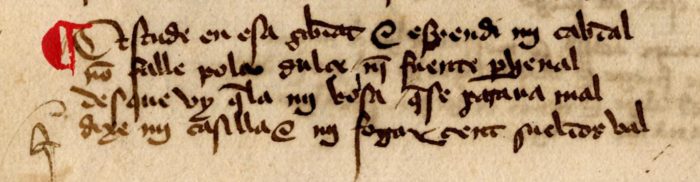 Estude en esa çibdat E espendi mj cabdal
nõ falle dulçe nj̃ fuente perhenal
desque vy q̃la mj bolsa q̃se paraua mal
dixe mj casilla E mj fogar çient sueldos val